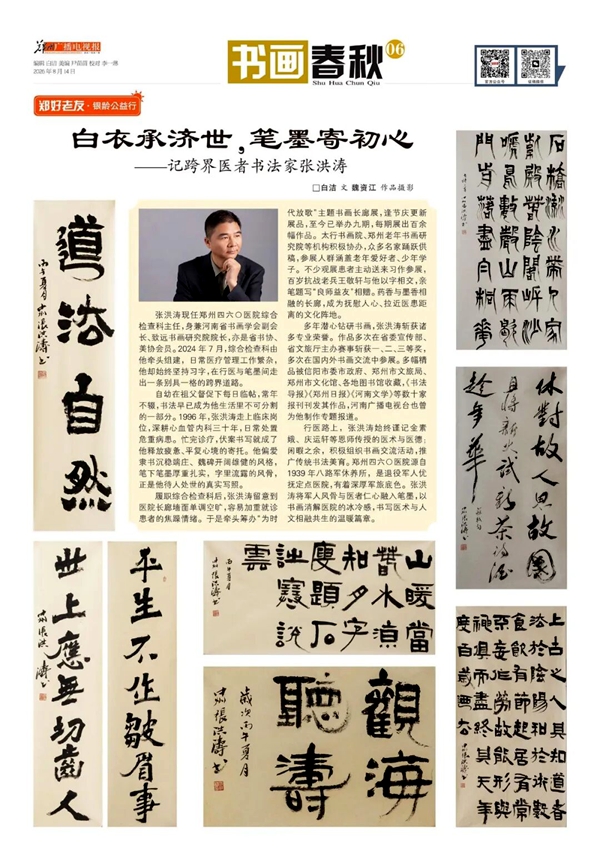 郑州广播电视报
编辑 白洁 美编 尹茵茵 校对 李一博
2026年8月14日
书画春秋
06
Shu Hua Chun Qiu
官方公众号
郑好老友·银龄公益行
白衣承济世，笔墨寄初心
——记跨界医者书法家张洪涛
□白洁 文 魏资江 作品摄影
张洪涛现任郑州四六〇医院综合
检查科主任，身兼河南省书画学会副会
长、致远书画研究院院长，亦是省书协、
美协会员。2024年7月，综合检查科由
他牵头组建，日常医疗管理工作繁杂，
他却始终坚持习字，在行医与笔墨间走
出一条别具一格的跨界道路。
自幼在祖父督促下每日临帖，常年
不辍，书法早已成为他生活里不可分割
的一部分。1996年，张洪涛走上临床岗
位，深耕心血管内科三十年，日常处置
危重病患。忙完诊疗，伏案书写就成了
他释放疲惫、平复心境的寄托。他偏爱
隶书沉稳端庄、魏碑开阔雄健的风格，
笔下笔墨厚重扎实，字里流露的风骨，
正是他待人处世的真实写照。
履职综合检查科后，张洪涛留意到
医院长廊墙面单调空旷，容易加重就诊
患者的焦躁情绪。于是牵头筹办“为时
代放歌”主题书画长廊展，逢节庆更新
展品，至今已举办九期，每期展出百余
幅作品。太行书画院、郑州老年书画研
究院等机构积极协办，众多名家踊跃供
稿，参展人群涵盖老年爱好者、少年学
子。不少观展患者主动送来习作参展，
百岁抗战老兵王敬轩与他以字相交，亲
笔题写“良师益友”相赠。药香与墨香相
融的长廊，成为抚慰人心、拉近医患距
离的文化阵地。
多年潜心钻研书画，张洪涛斩获诸
多专业荣誉。作品多次在省委宣传部、
省文旅厅主办赛事斩获一、二、三等奖，
多次在国内外书画交流中参展。多幅精
品被信阳市委市政府、郑州市文旅局、
郑州市文化馆、各地图书馆收藏，《书法
导报》《郑州日报》《河南文学》等数十家
报刊刊发其作品，河南广播电视台也曾
为他制作专题报道。
行医路上，张洪涛始终谨记金素
娥、庆运轩等恩师传授的医术与医德；
闲暇之余，积极组织书画交流活动，推
广传统书法美育。郑州四六〇医院源自
1939年八路军休养所，是退役军人优
抚定点医院，有着深厚军旅底色。张洪
涛将军人风骨与医者仁心融入笔墨，以
书画消解医院的冰冷感，书写医术与人
文相融共生的温暖篇章。
道法自然
丙午夏月
张洪涛书
平生不作皱眉事
世上应无切齿人
張洪濤书
山暖当
春水滇
和夕字
更题石
雲
觀海
聽濤
歲次丙午夏月
張洪濤书
休對故人思故國
且將新火試新茶詩酒
趁年華
上古之人其知道者
法於陰陽和於術數
食飲有節起居有常
不妄作勞故能形與
神俱而盡終其天年
度百歲乃去